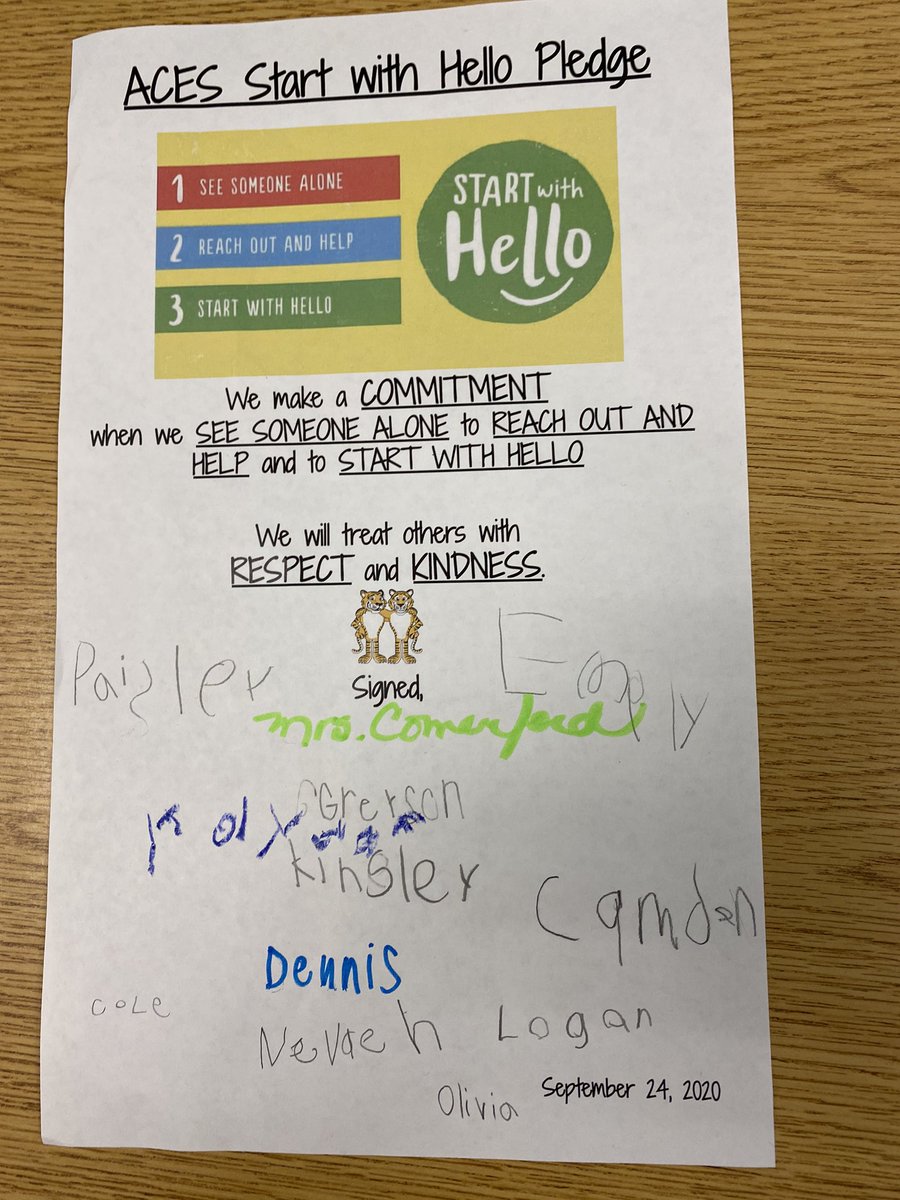 ACES Start with Hello Pledge
1 SEE SOMEONE ALONE
2 REACH OUT AND HELP
3 START WITH HELLO
START with
Hello
We make a COMMITMENT
when we SEE SOMEONE ALONE to REACH OUT AND
HELP and to START WITH HELLO
We will treat others with
RESPECT and KINDNESS.
Signed,
Paisley
Mrs. Comerford
Greyson
Kinsley
Camden
Dennis
COLe
Nevaeh
Logan
Olivia
September 24, 2020